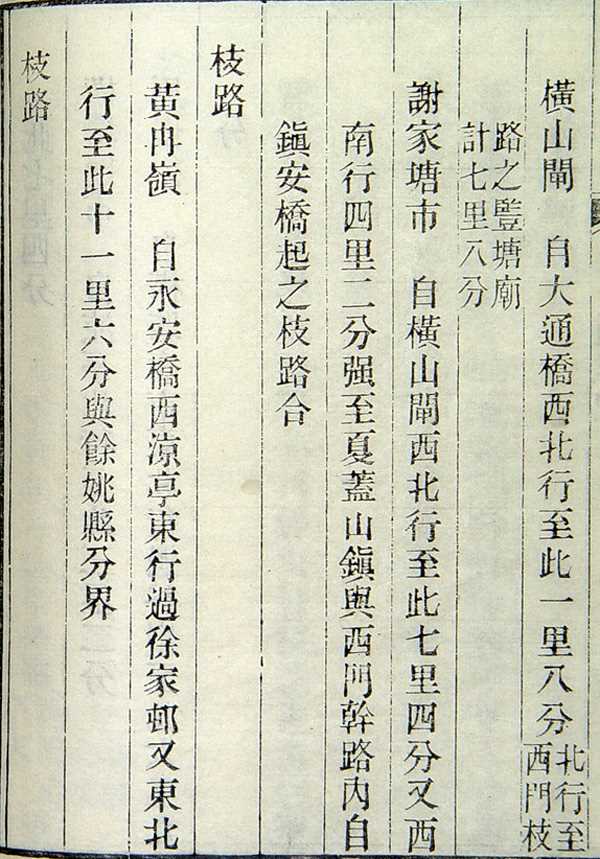 橫山閘　自大通橋西北行至此一里八分北行至
西門枝
路之豎塘廟
計七里八分
謝家塘市　自橫山閘西北行至此七里四分又西
南行四里二分强至夏蓋山鎮與西門幹路內自
鎮安橋起之枝路合
枝路
黃冉嶺　自永安橋西涼亭東行過徐家邨又東北
行至此十一里六分與餘姚縣分界
枝路